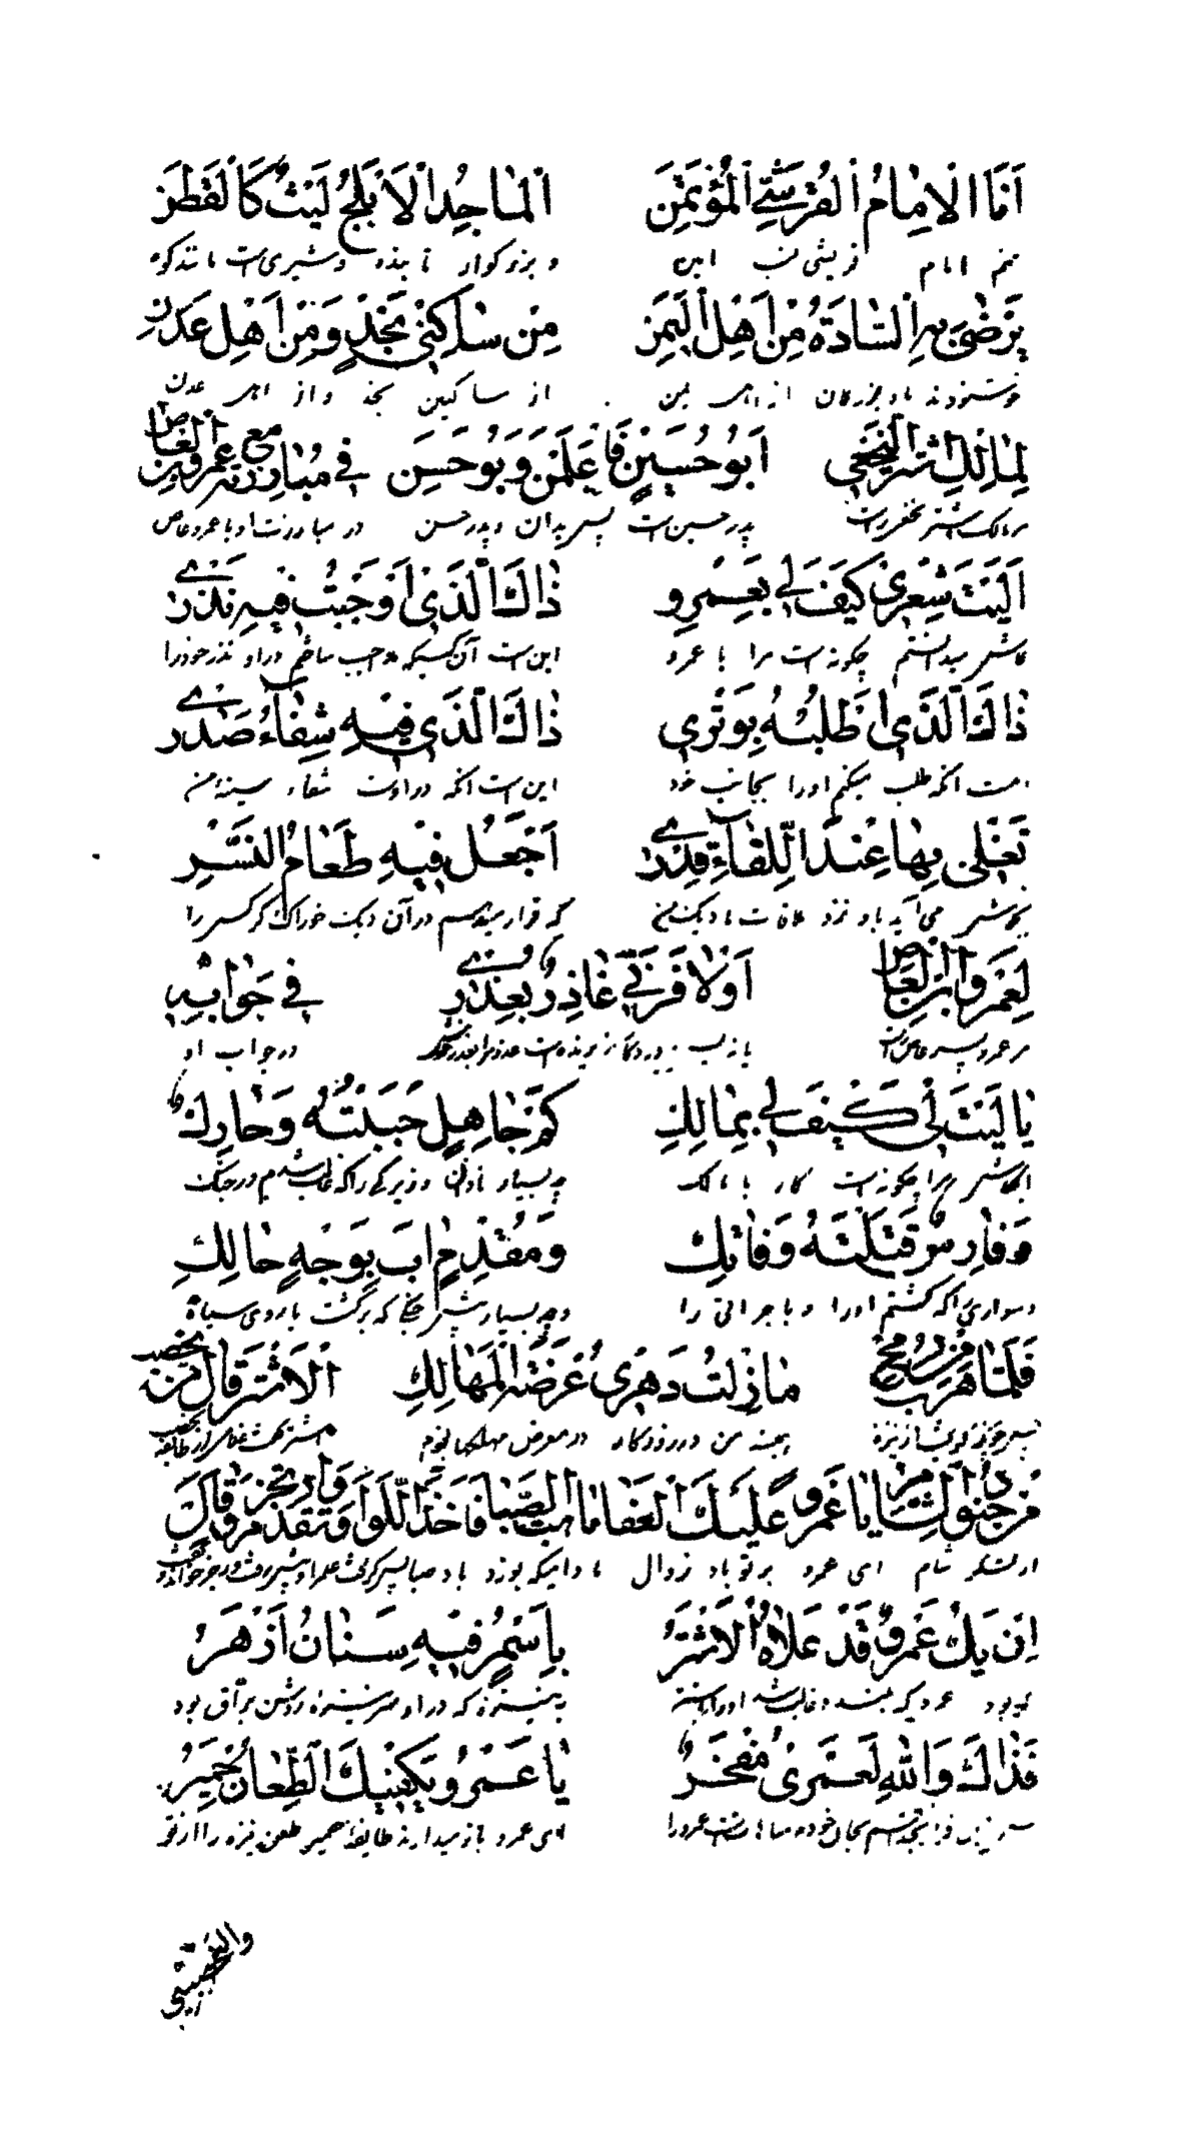 اَنَا الْاِمَامُ الْقُرَشِيُّ الْمُؤْتَمَنِ الْمَاجِدُ الْاَبْلَجُ لَيْثٌ كَالْقَطَنِ
منم امام قریشی نسب امین و بزرکوار تابنده و شیری است مانند کوه
يَرْضٰى بِهِ السَّادَةُ مِنْ اَهْلِ الْيَمَنِ مِنْ سَاكِنِي نَجْدٍ وَمِنْ اَهْلِ عَدَنِ
خوشنودند باو بزرکان از اهل یمن از ساکنین نجد و از اهل عدن
لِمَالِكِ اشْتَرِ النَّخَعِي اَبُو حُسَيْنٍ فَاعْلَمَنْ وَبُو حَسَنِ فِي مُبَارَزَتِهِ مَعَ عَمْرِو بْنِ الْعَاصِ
مر مالک اشتر نخعی راست پدر حسین است پس بدان و پدر حسن در مبارزت او با عمرو عاص
اَلَيْتَ شِعْرِي كَيْفَ لِي بِعَمْرٍو ذَاكَ الَّذِي اَوْجَبْتُ فِيهِ نَذْرِي
کاش میدانستم چکونه است مرا با عمرو این است آن کسیکه واجب ساختم در او نذر خود را
ذَاكَ الَّذِي اَطْلُبُهُ بِوِتْرِي ذَاكَ الَّذِي فِيهِ شِفَاءُ صَدْرِي
است آنکه طلب میکنم او را بجانب خود این است آنکه در اوست شفاء سینه من
تَغْلِي بِهَا عِنْدَ اللِّقَاءِ قِدْرِي اَجْعَلُ فِيهِ طَعَامَ النَّسْرِ
می آید باو نزد ملاقات دیک من که قرار میدهم در آن دیک خوراک کرکس را
لِعَمْرِو ابْنِ الْعَاصِ اَوْلَا فَرَبِّي عَاذِرٌ بِعُذْرِي فِي جَوَابِهِ
مر عمرو پسر عاص راست در جواب او
يَا لَيْتَ لِي كَيْفَ لِي بِمَالِكِ كَمْ جَاهِلٍ جَبَتْهُ وَحَارِكِ
ایکاش مرا چکونه است کار با مالک چه بسیار نادان و زیرکی را که غالب شدم در جنک
وَفَارِسٍ قَتَلْتُهُ وَفَاتِكِ وَمُقْدِمٍ اٰبَ بِوَجْهٍ حَالِكِ
و سواری که کشتم او را و با جراتی را و چه بسیار پیش جنکی که برکشت با روی سیاه
فَلَمَّا هَرَبَ مِنْ رُمْحِ مَا زِلْتُ دَهْرِي عُرْضَةَ الْمَهَالِكِ الْاَشْتَرِ قَالَ مِنْ يَحْصُبَ
همیشه من در روزکار در معرض مهلکها بودم
مِنْ جُنُودِ الشَّامِ يَا عَمْرُو عَلَيْكَ الْعَفَا مَا هَبَّتِ الصَّبَا فَاَخَذَ اللِّوَا وَتَقَدَّمَ وَارْتَجَزَ وَقَالَ
از لشکر شام ای عمرو بر تو باد زوال مادامیکه بوزد باد صبا پس کرفت علم را و پیش رفت و رجز خواند و کفت
اِنْ يَكُ عَمْرٌو قَدْ عَلَاهُ الْاَشْتَرُ بِاَسْمَرٍ فِيهِ سِنَانٌ اَزْهَرُ
که بود عمرو که بلند و غالب شد او را اشتر به نیزه که در او سر نیزه روشن براق بود
فَذَاكَ وَاللّٰهِ لَعَمْرِي مَفْخَرُ يَا عَمْرُو يَكْفِيكَ الطِّعَانَ حِمْيَرُ
ای عمرو باز میدارند طایفه حمیر طعن نیزه را از تو